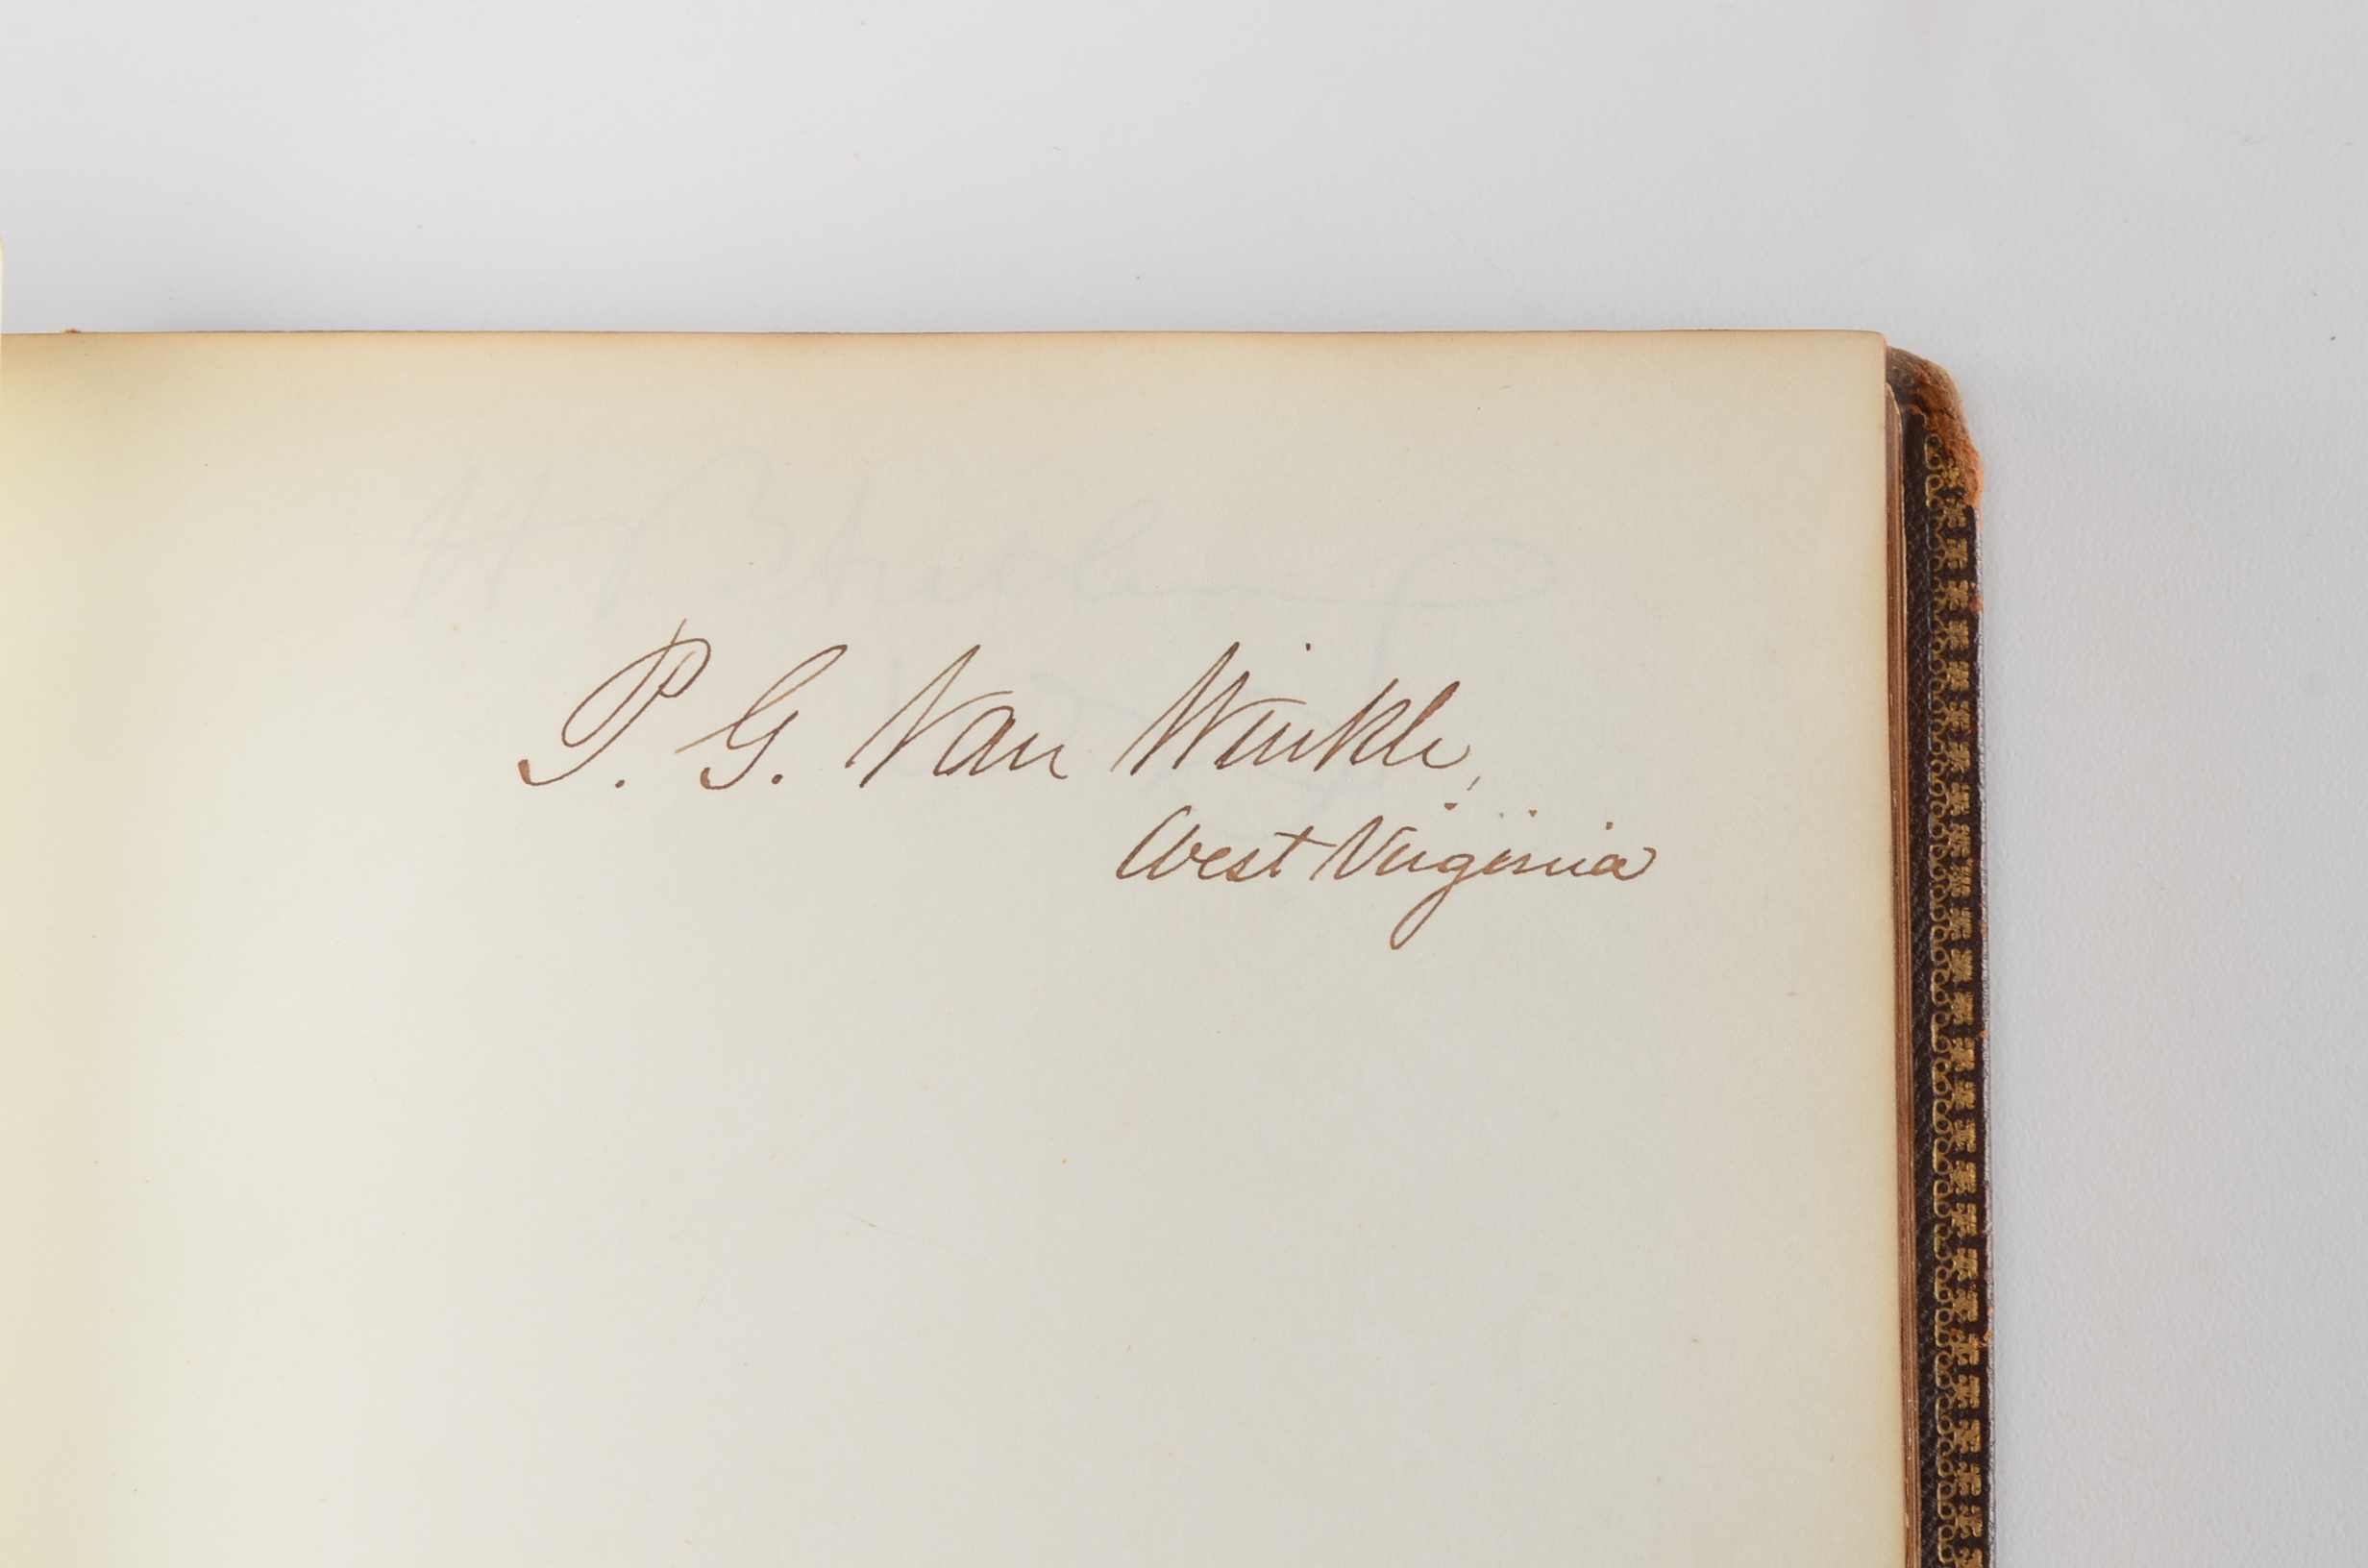 P. G. Van Winkle,
West Virginia